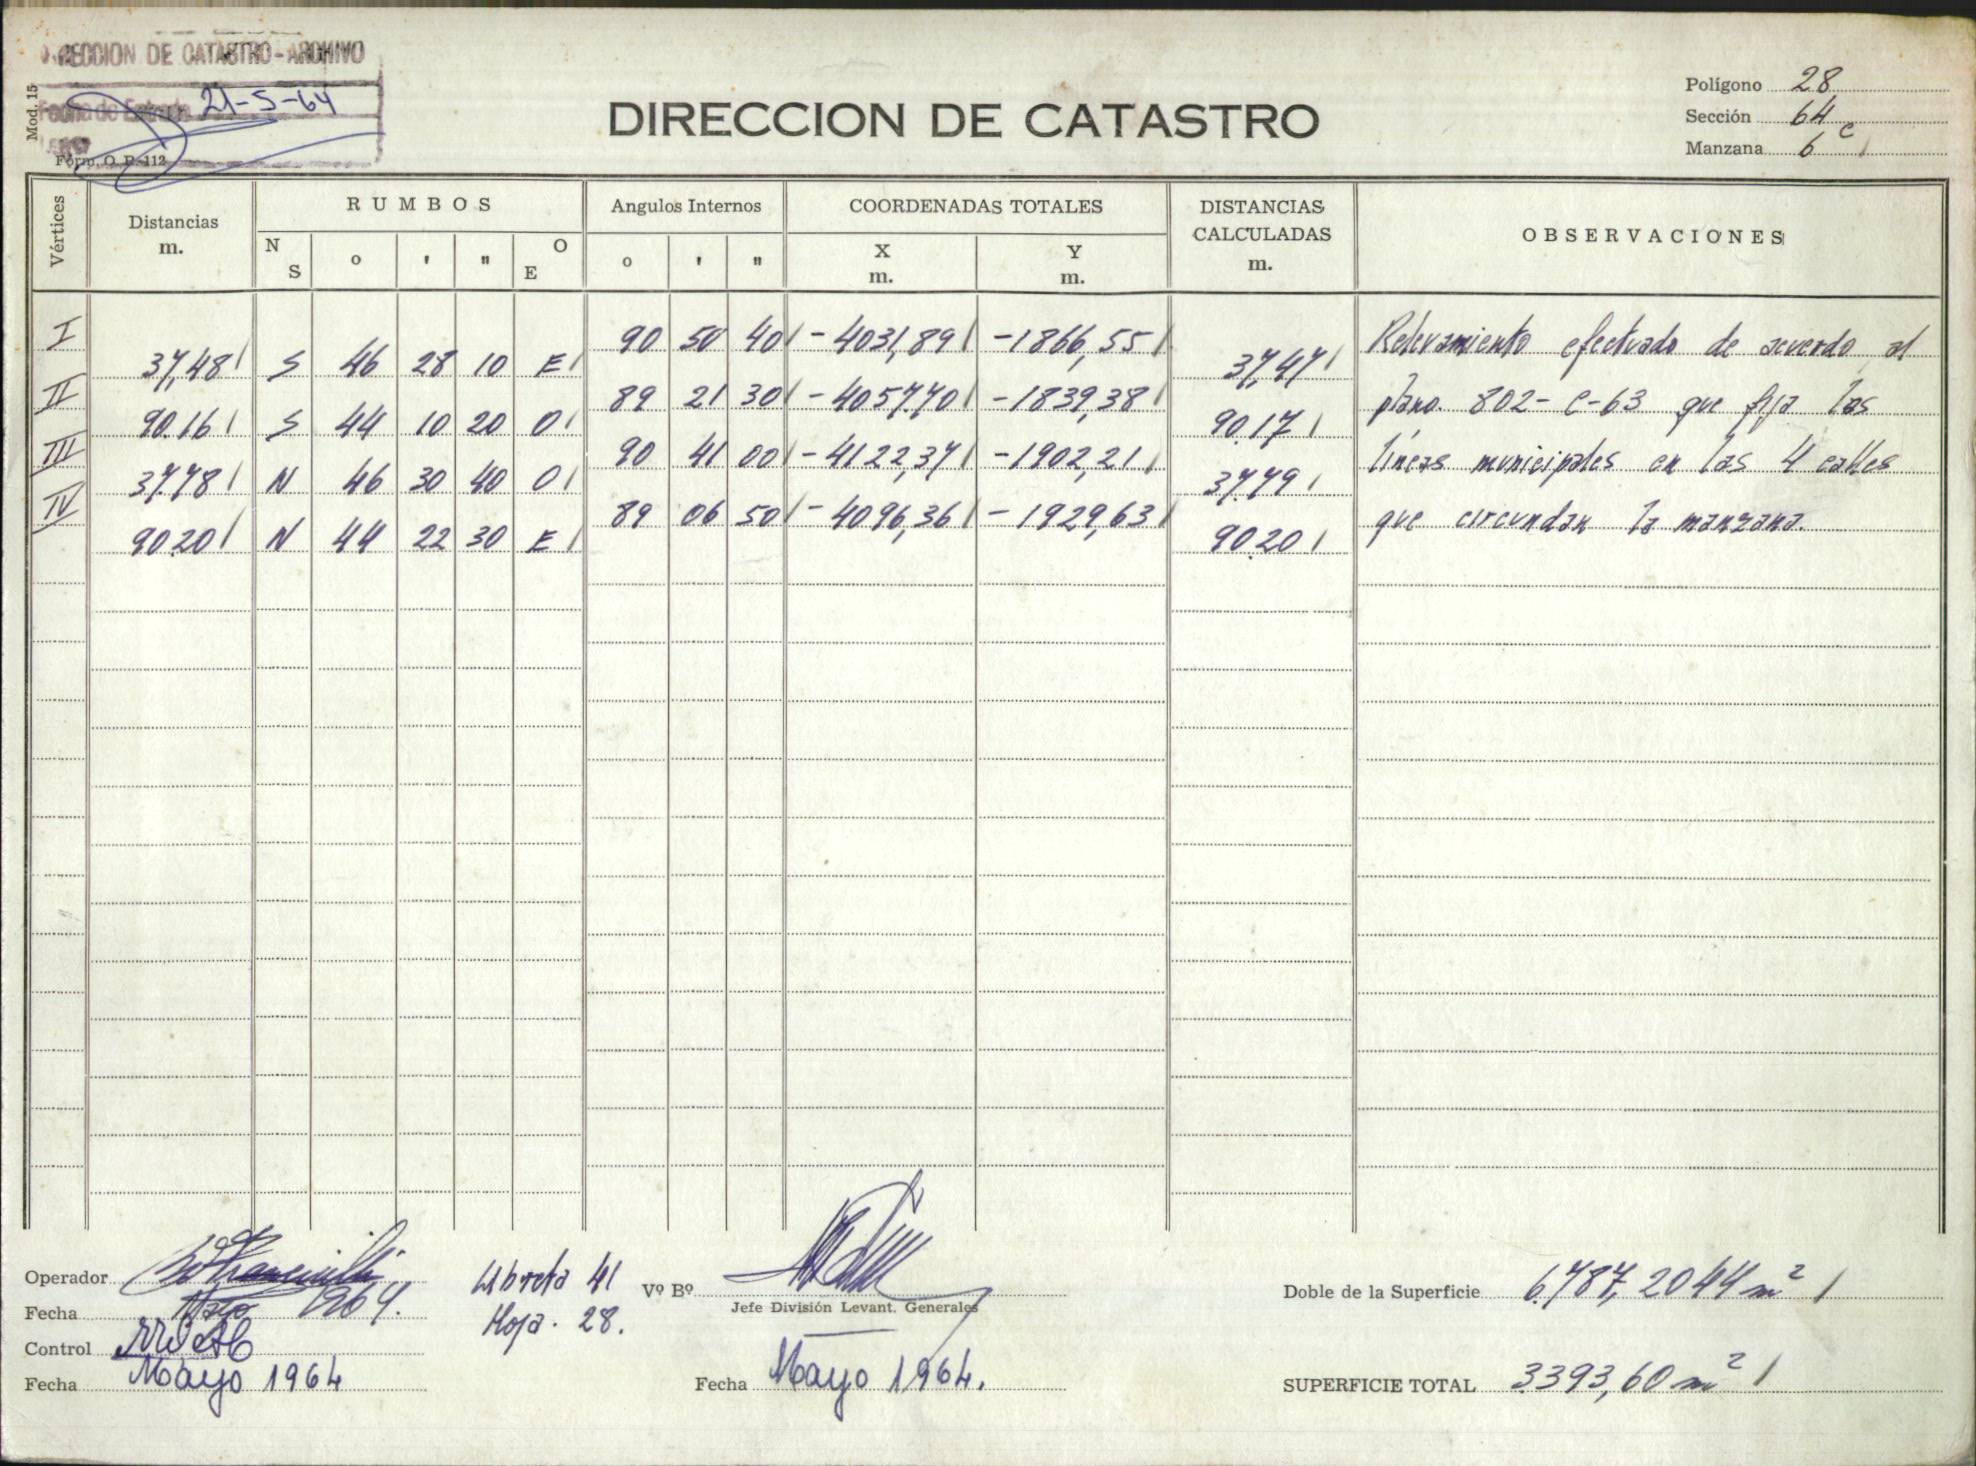 DIRECCION DE CATASTRO - ARCHIVO
Fecha de Entrada 21-5-64
Mod. 15
Form. O. P. 112
DIRECCION DE CATASTRO
Polígono 28
Sección 64
Manzana 6 c
Vértices
Distancias m.
RUMBOS
N S ° ' " O E
Angulos Internos
° ' "
COORDENADAS TOTALES
X m. Y m.
DISTANCIAS CALCULADAS m.
OBSERVACIONES
I 90 50 40 -4031,89 -1866,55 Relevamiento efectuado de acuerdo al
37,48 S 46 28 10 E 37,47
II 89 21 30 -4057,70 -1839,38 plano 802-C-63 que fija las
90.16 S 44 10 20 O 90,17
III 90 41 00 -4122,37 -1902,21 líneas municipales en las 4 calles
37.78 N 46 30 40 O 37,79
IV 89 06 50 -4096,36 -1929,63 que circundan la manzana.
90.20 N 44 22 30 E 90.20
Operador
Fecha Mayo 1964.
Control
Fecha Mayo 1964
Libreta 41
Hoja. 28.
Vº Bº
Jefe División Levant. Generales
Fecha Mayo 1964.
Doble de la Superficie 6.787,2044 m²
SUPERFICIE TOTAL 3393,60 m²